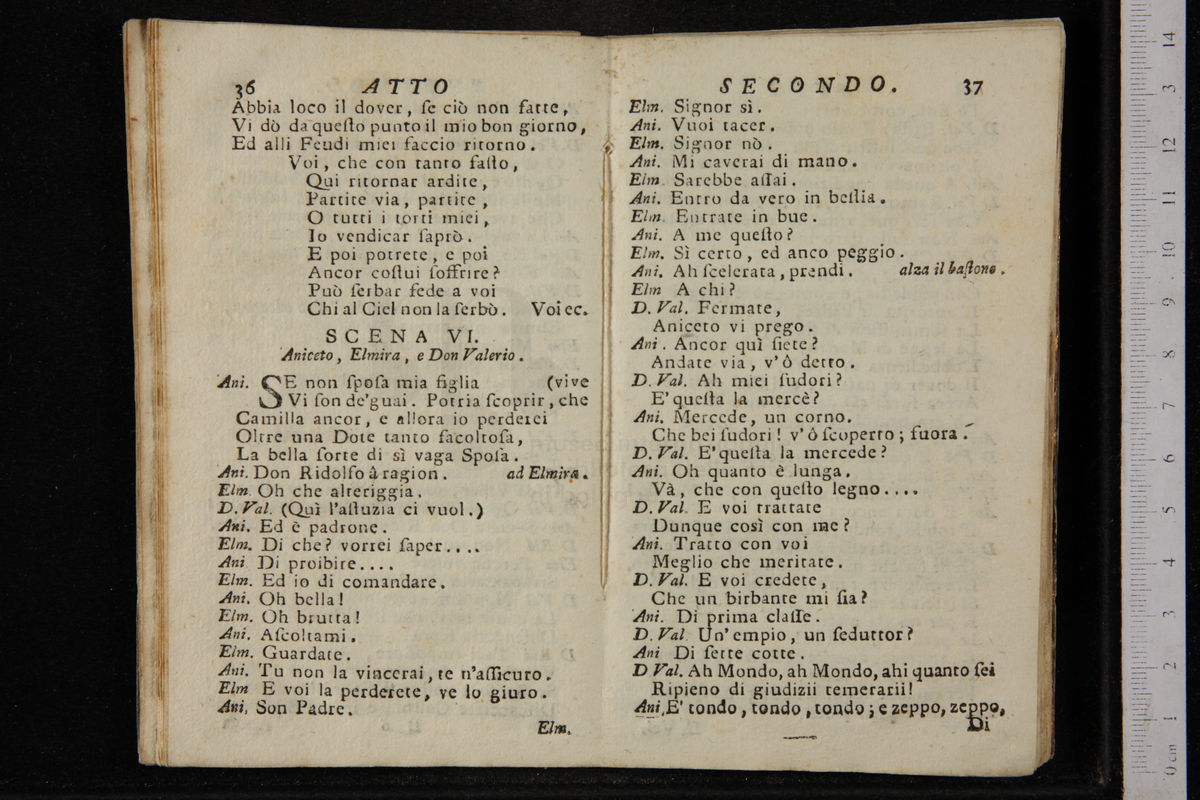 36 ATTO
Abbia loco il dover, ſe ciò non fatte,
Vi dò da queſto punto il mio bon giorno,
Ed alli Feudi miei faccio ritorno.
Voi, che con tanto faſto,
Qui ritornar ardite,
Partite via, partite,
O tutti i torti miei,
Io vendicar ſaprò.
E poi potrete, e poi
Ancor coſtui ſoffrire?
Può ſerbar fede a voi
Chi al Ciel non la ſerbò. Voi ec.
SCENA VI.
Aniceto, Elmira, e Don Valerio.
Ani. SE non ſpoſa mia figlia (vive
Vi ſon de'guai. Potria ſcoprir, che
Camilla ancor, e allora io perderei
Oltre una Dote tanto facoltoſa,
La bella ſorte di sì vaga Spoſa.
Ani. Don Ridolfo â ragion. ad Elmira.
Elm. Oh che alteriggia.
D. Val. (Quì l'aſtuzia ci vuol.)
Ani. Ed è padrone.
Elm. Di che? vorrei ſaper....
Ani Di proibire....
Elm. Ed io di comandare.
Ani. Oh bella!
Elm. Oh brutta!
Ani. Aſcoltami.
Elm. Guardate.
Ani. Tu non la vincerai, te n'aſſicuro.
Elm E voi la perderete, ve lo giuro.
Ani. Son Padre.
Elm.
SECONDO. 37
Elm. Signor sì.
Ani. Vuoi tacer.
Elm. Signor nò.
Ani. Mi caverai di mano.
Elm. Sarebbe aſſai.
Ani. Entro da vero in beſtia.
Elm. Entrate in bue.
Ani. A me queſto?
Elm. Sì certo, ed anco peggio.
Ani. Ah ſcelerata, prendi. alza il baſtone.
Elm A chi?
D. Val. Fermate,
Aniceto vi prego.
Ani. Ancor quì ſiete?
Andate via, v'ô detto.
D. Val. Ah miei ſudori?
E' queſta la mercè?
Ani. Mercede, un corno.
Che bei ſudori! v'ô ſcoperto; fuora.
D. Val. E' queſta la mercede?
Ani. Oh quanto è lunga.
Và, che con queſto legno....
D. Val. E voi trattate
Dunque così con me?
Ani. Tratto con voi
Meglio che meritate.
D. Val. E voi credete,
Che un birbante mi ſia?
Ani. Di prima claſſe.
D. Val. Un' empio, un ſeduttor?
Ani Di ſette cotte.
D Val. Ah Mondo, ah Mondo, ahi quanto ſei
Ripieno di giudizii temerarii!
Ani. E' tondo, tondo, tondo; e zeppo, zeppo,
Di
0 cm 1 2 3 4 5 6 7 8 9 10 11 12 3 14